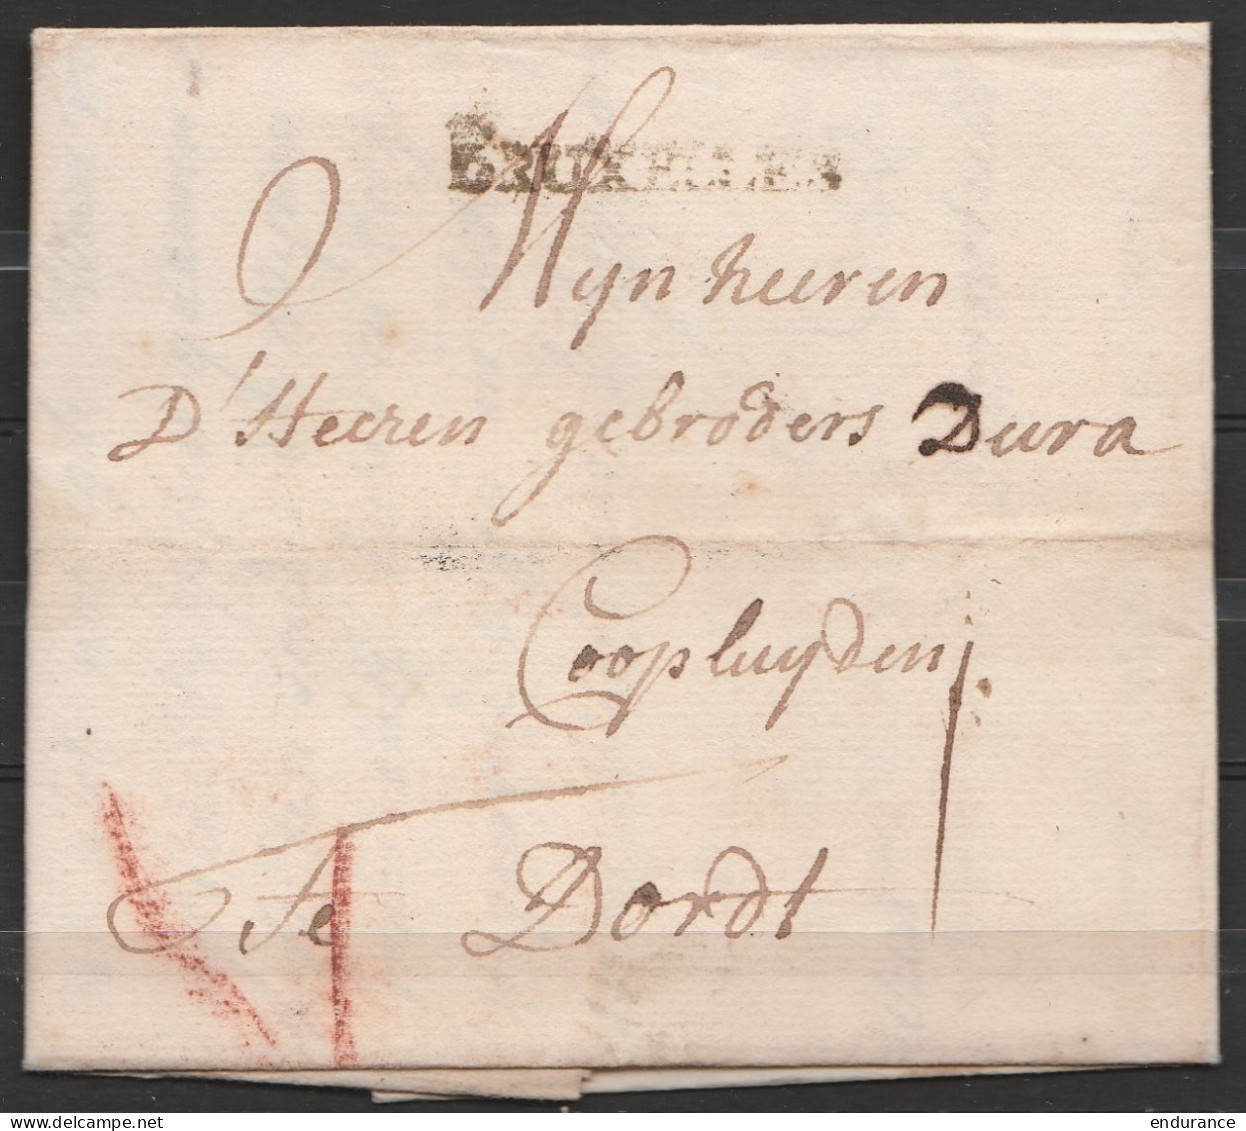 BRUXELLES
Mijn heeren
D'Heeren gebroders Dura
Coopluijden
Te Dordt
delcampe.net
endurance